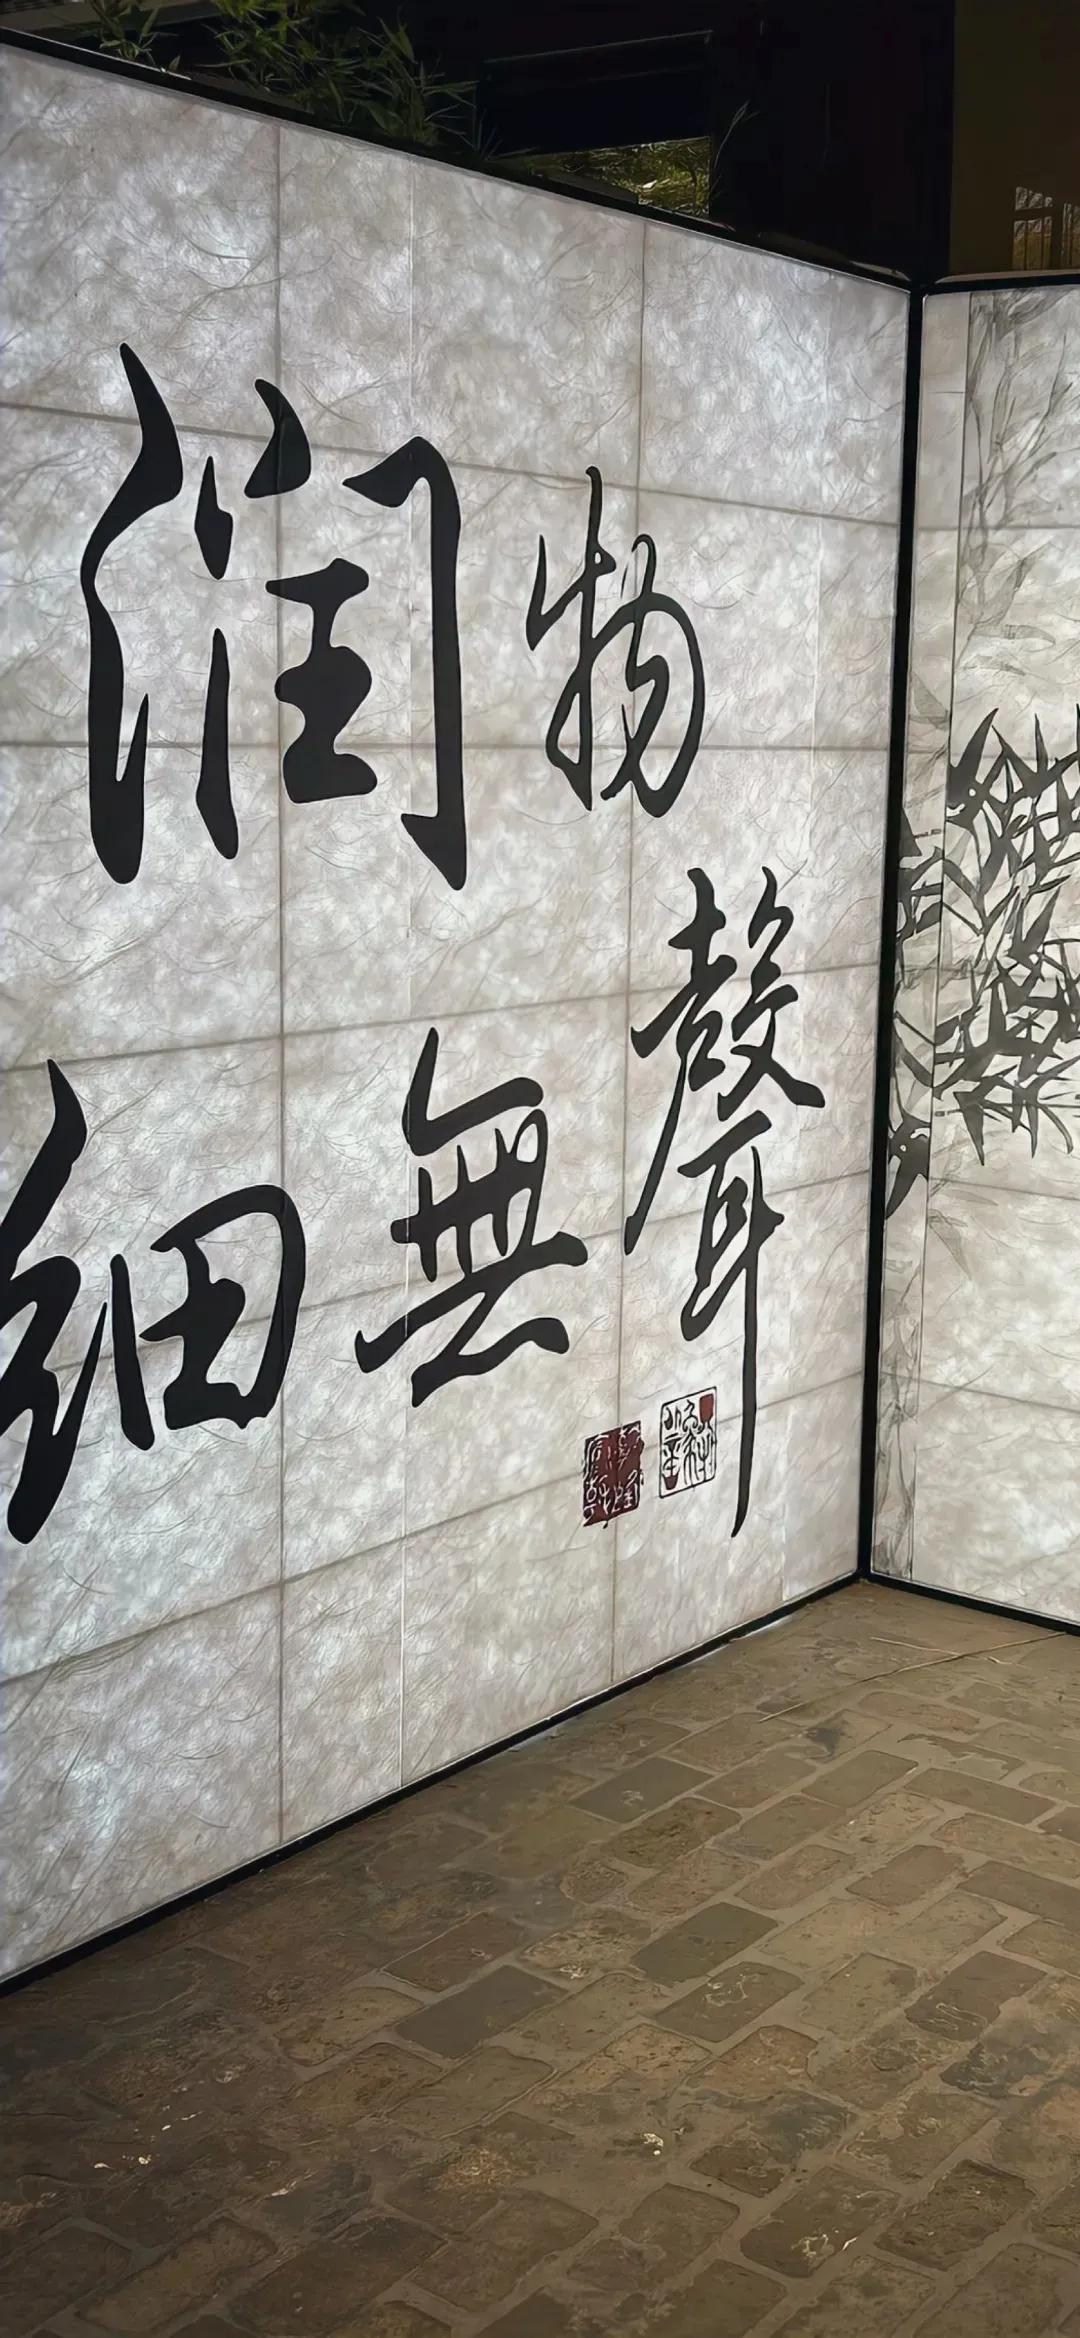 润物
细無聲